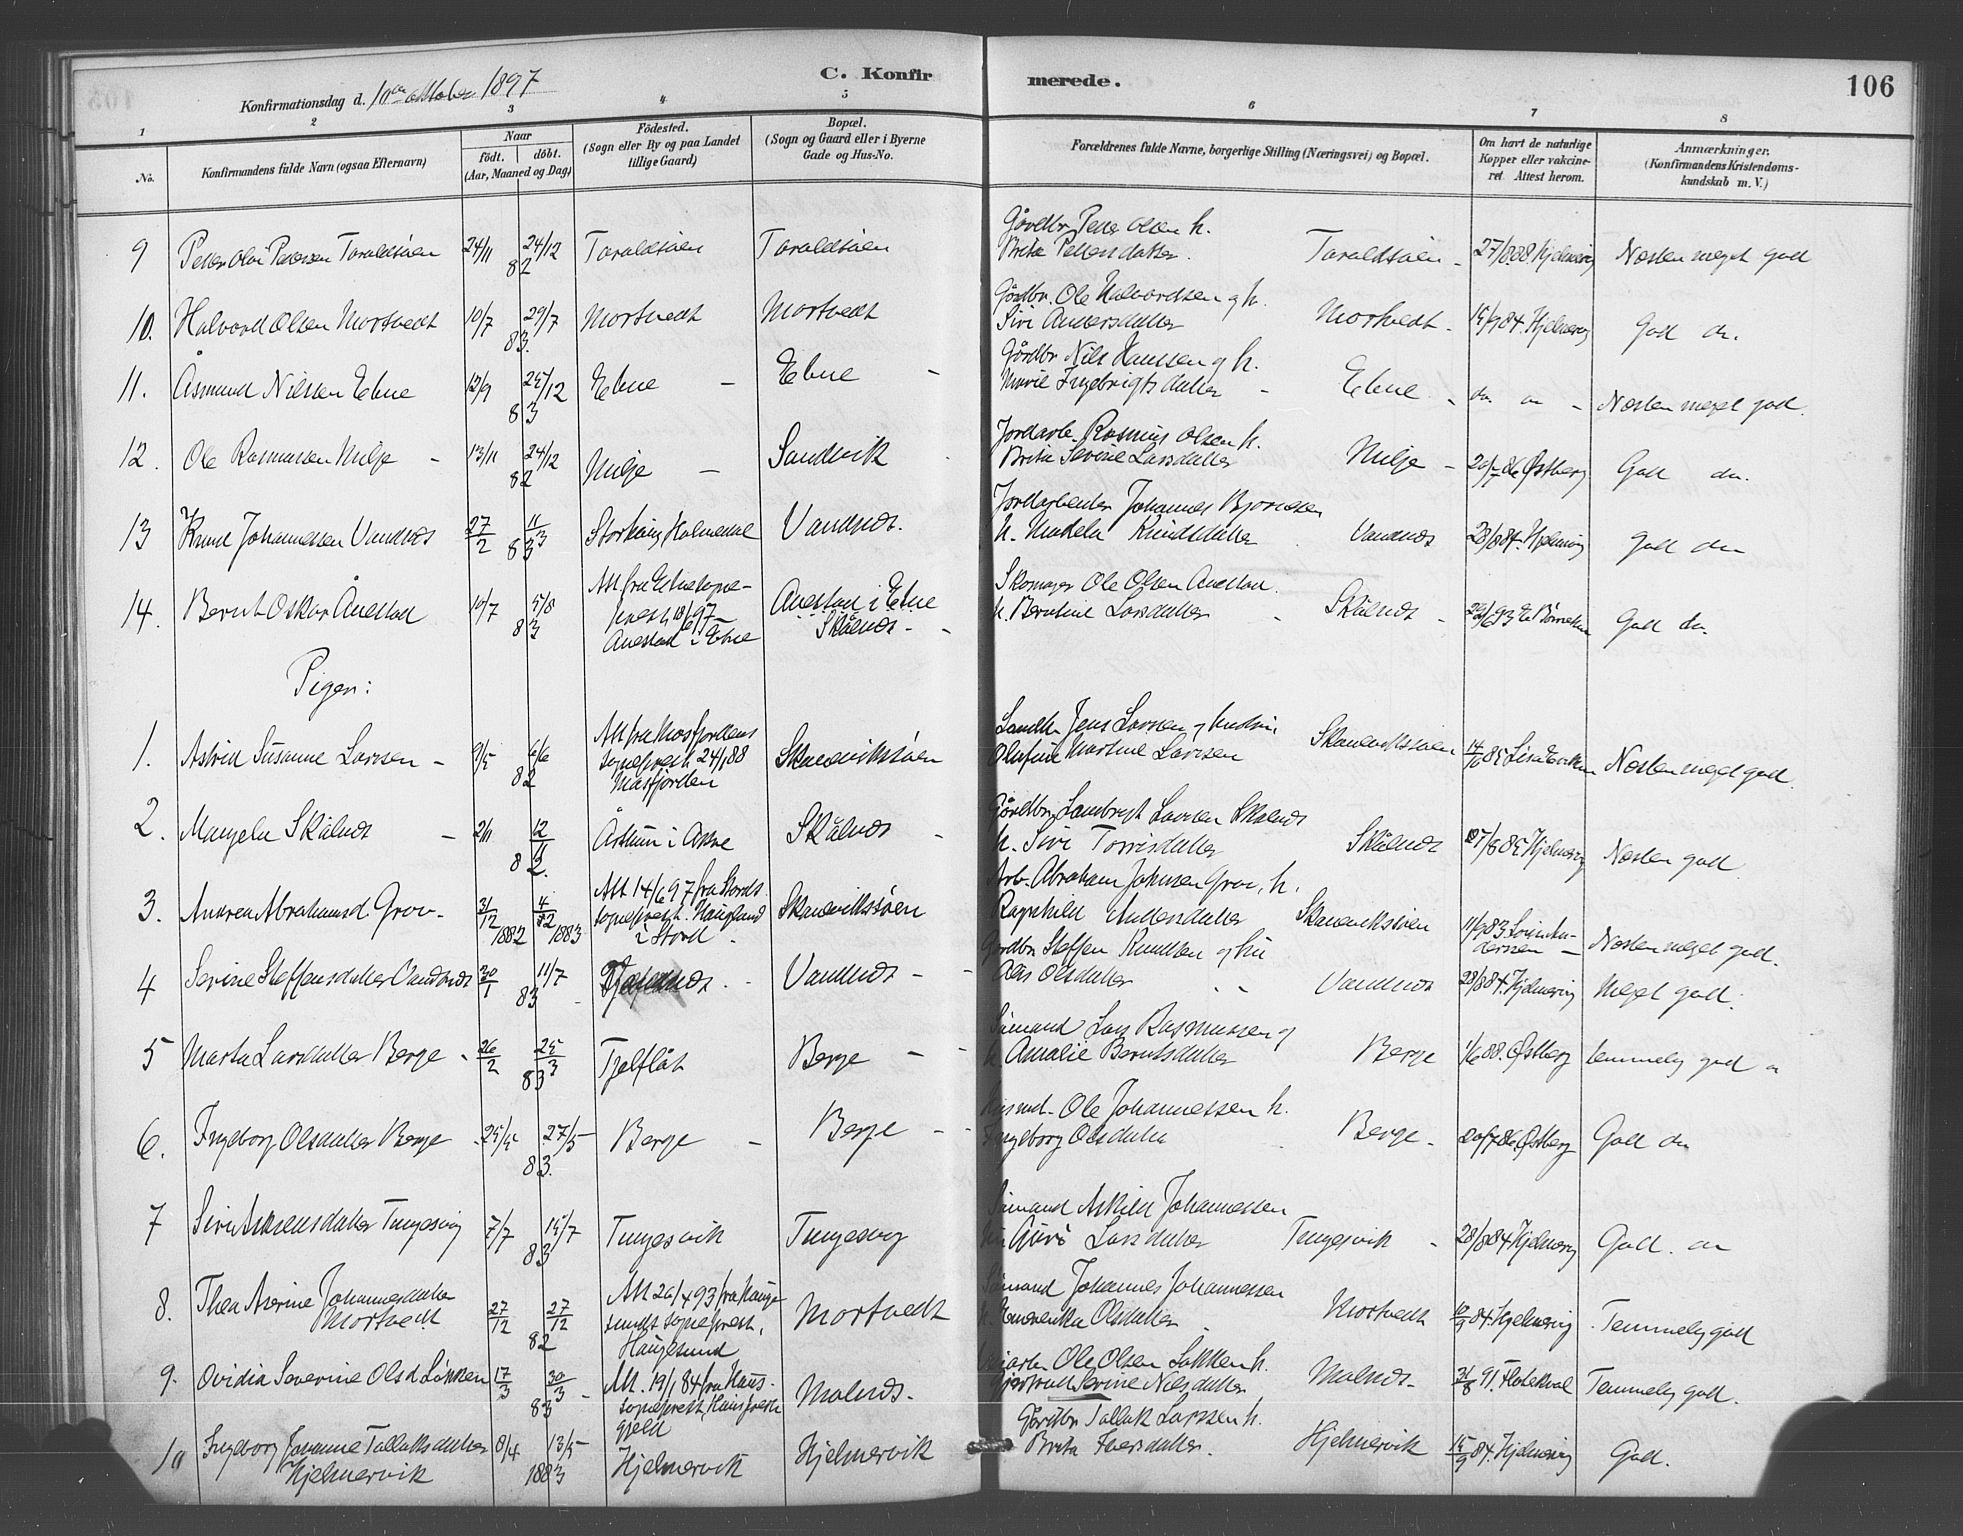 C. Konfir merede. 106
Konfirmationsdag d. 10de oktober 1897
1 2 3 4 5 6 7 8
No.
Konfirmandens fulde Navn (ogsaa Efternavn)
Naar
födt. döbt.
(Aar, Maaned og Dag)
Födested.
(Sogn eller By og paa Landet
tillige Gaard)
Bopæl.
(Sogn og Gaard eller i Byerne
Gade og Hus-No.
Forældrenes fulde Navne, borgerlige Stilling (Næringsvei) og Bopæl.
Om havt de naturlige
Kopper eller vakcine-
ret Attest herom.
Anmærkninger.
(Konfirmandens Kristendoms-
kundskab m. V.)
9 Peder Olai Pedersen Taraldsöen 24/11 24/12 82 Taraldsöen Taraldsöen
Gårdbr Peder Olsen h.
Brita Pedersdatter. Taraldsöen - 27/8 88. Hjelmervig Næsten meget god
10. Halvord Olsen Mortvedt 10/7 29/7 83. Mortvedt Mortvedt
Gårdbr. Ole Halvordsen og h.
Siri Andersdatter Mortvedt - 84. Hjelmervig God do.
11. Åsmund Nilsen Ebne 83 Ebne - Ebne -
Gårdbr Nils Hanssen og h.
Marie Ingebrigtsdatter - Ebne - do. Næsten meget god.
12. Ole Rasmussen Milje - 13/11 24/12 82 Milje - Sandvik
Jordarb. Rasmus Olsen h.
Brita Serine Larsdatter Milje - 86 Østberg God do.
13 Knud Johannessen Vandnes 27/2 11/3 83 Vandnes.
Jordarbeider Johannes
h. Knudsdatter Vandnes 28/8 84. Hjelmervig God do
14. Bernt Oskar Ånestad 10/7 5/8 83
Att fra Etne sogne-
prest 18/6 97
Anestad i Etne
Anestad i Etne
Skålnes -
Skomager Ole Olsen Anestad
h. Berntine Larsdatter Skålnes - 93 God do.
Piger:
1. Astrid Susanne Larsen - 9/5 6/6 82
Att fra Masfjordens
sogneprest 24/1 88
Masfjorden
Skaneviksöen
Landh. Jens Larsen og hustru
Olufine Martine Larsen Skaneviksöen 85 Næsten meget god.
2. Skålnes - 2/11 12/11 82. Skålnes -
Gårdbr. Lambregt Larsen Skalnes
h. Siri Torrisdatter Skålnes 27/8 85 Hjelmervig Næsten god
3. Andrea Abrahamsd Grov - 31/12 1882 4/2 1883
Att 14/6 97 fra Stords
sogneprest. Haugland
i Stord.
Skaneviksöen
Arb. Abraham Johnsen Grov, h.
Ragnhild Andersdatter Skaneviksöen 11/9 83 Næsten meget god.
4 Serine Steffensdatter Vandnes 30/1 11/7 83 Vandnes -
Gardbr Steffen Knudsen og hu
Olsdatter Vandnes 28/8 84. Hjelmervig Meget god.
5 Marta Larsdatter Berge - 26/2 25/3 83 Tjelflåt Berge -
Sömand Lars Rasmussen og
h. Amalie Berntsdatter Berge 1/6 88. Østberg temmelig god
6. Ingeborg Olsdatter Berge 25/5 27/5 83. Berge - Berge -
Husmd. Ole Johannessen h.
Ingeborg Olsdatter Berge - 20/7 86. Østberg God do
7 Siri Tungesvig 7/7 15/7 83 Tungesvik Tungesvig
Sömand Askild Johannessen
hu Larsdatter Tungesvik - 28/8 84 Hjelmervig God.
8. Thea Aserine Johannesdatter
Mortvedt 27/12 27/12 82
Att 26/4 93 fra Hauge-
sunds sogneprest,
Haugesund
Mortvedt
Sömand Johannes Johannessen
h. Olsdatter Mortvedt 84. Hjelmervig Temmelig god
9. Ovidia Severine Olsd Lökken 17/3 30/3 83
Att. 19/1 84 fra Haus
sogneprest, Haus preste
gjeld
Malnes.
Ole Olsen Løkken h.
Serine Nilsdatter Malnes - 31/8 91. Flotekval Temmelig god.
10 Ingeborg Johanne Tallaksdatter
Hjelmervik 8/4 13/5 1883 Hjelmervik Hjelmervik
Gårdbr Tallak Larssen h.
Brita Iversdatter. Hjelmervik 15/9 84. Hjelmervig God.